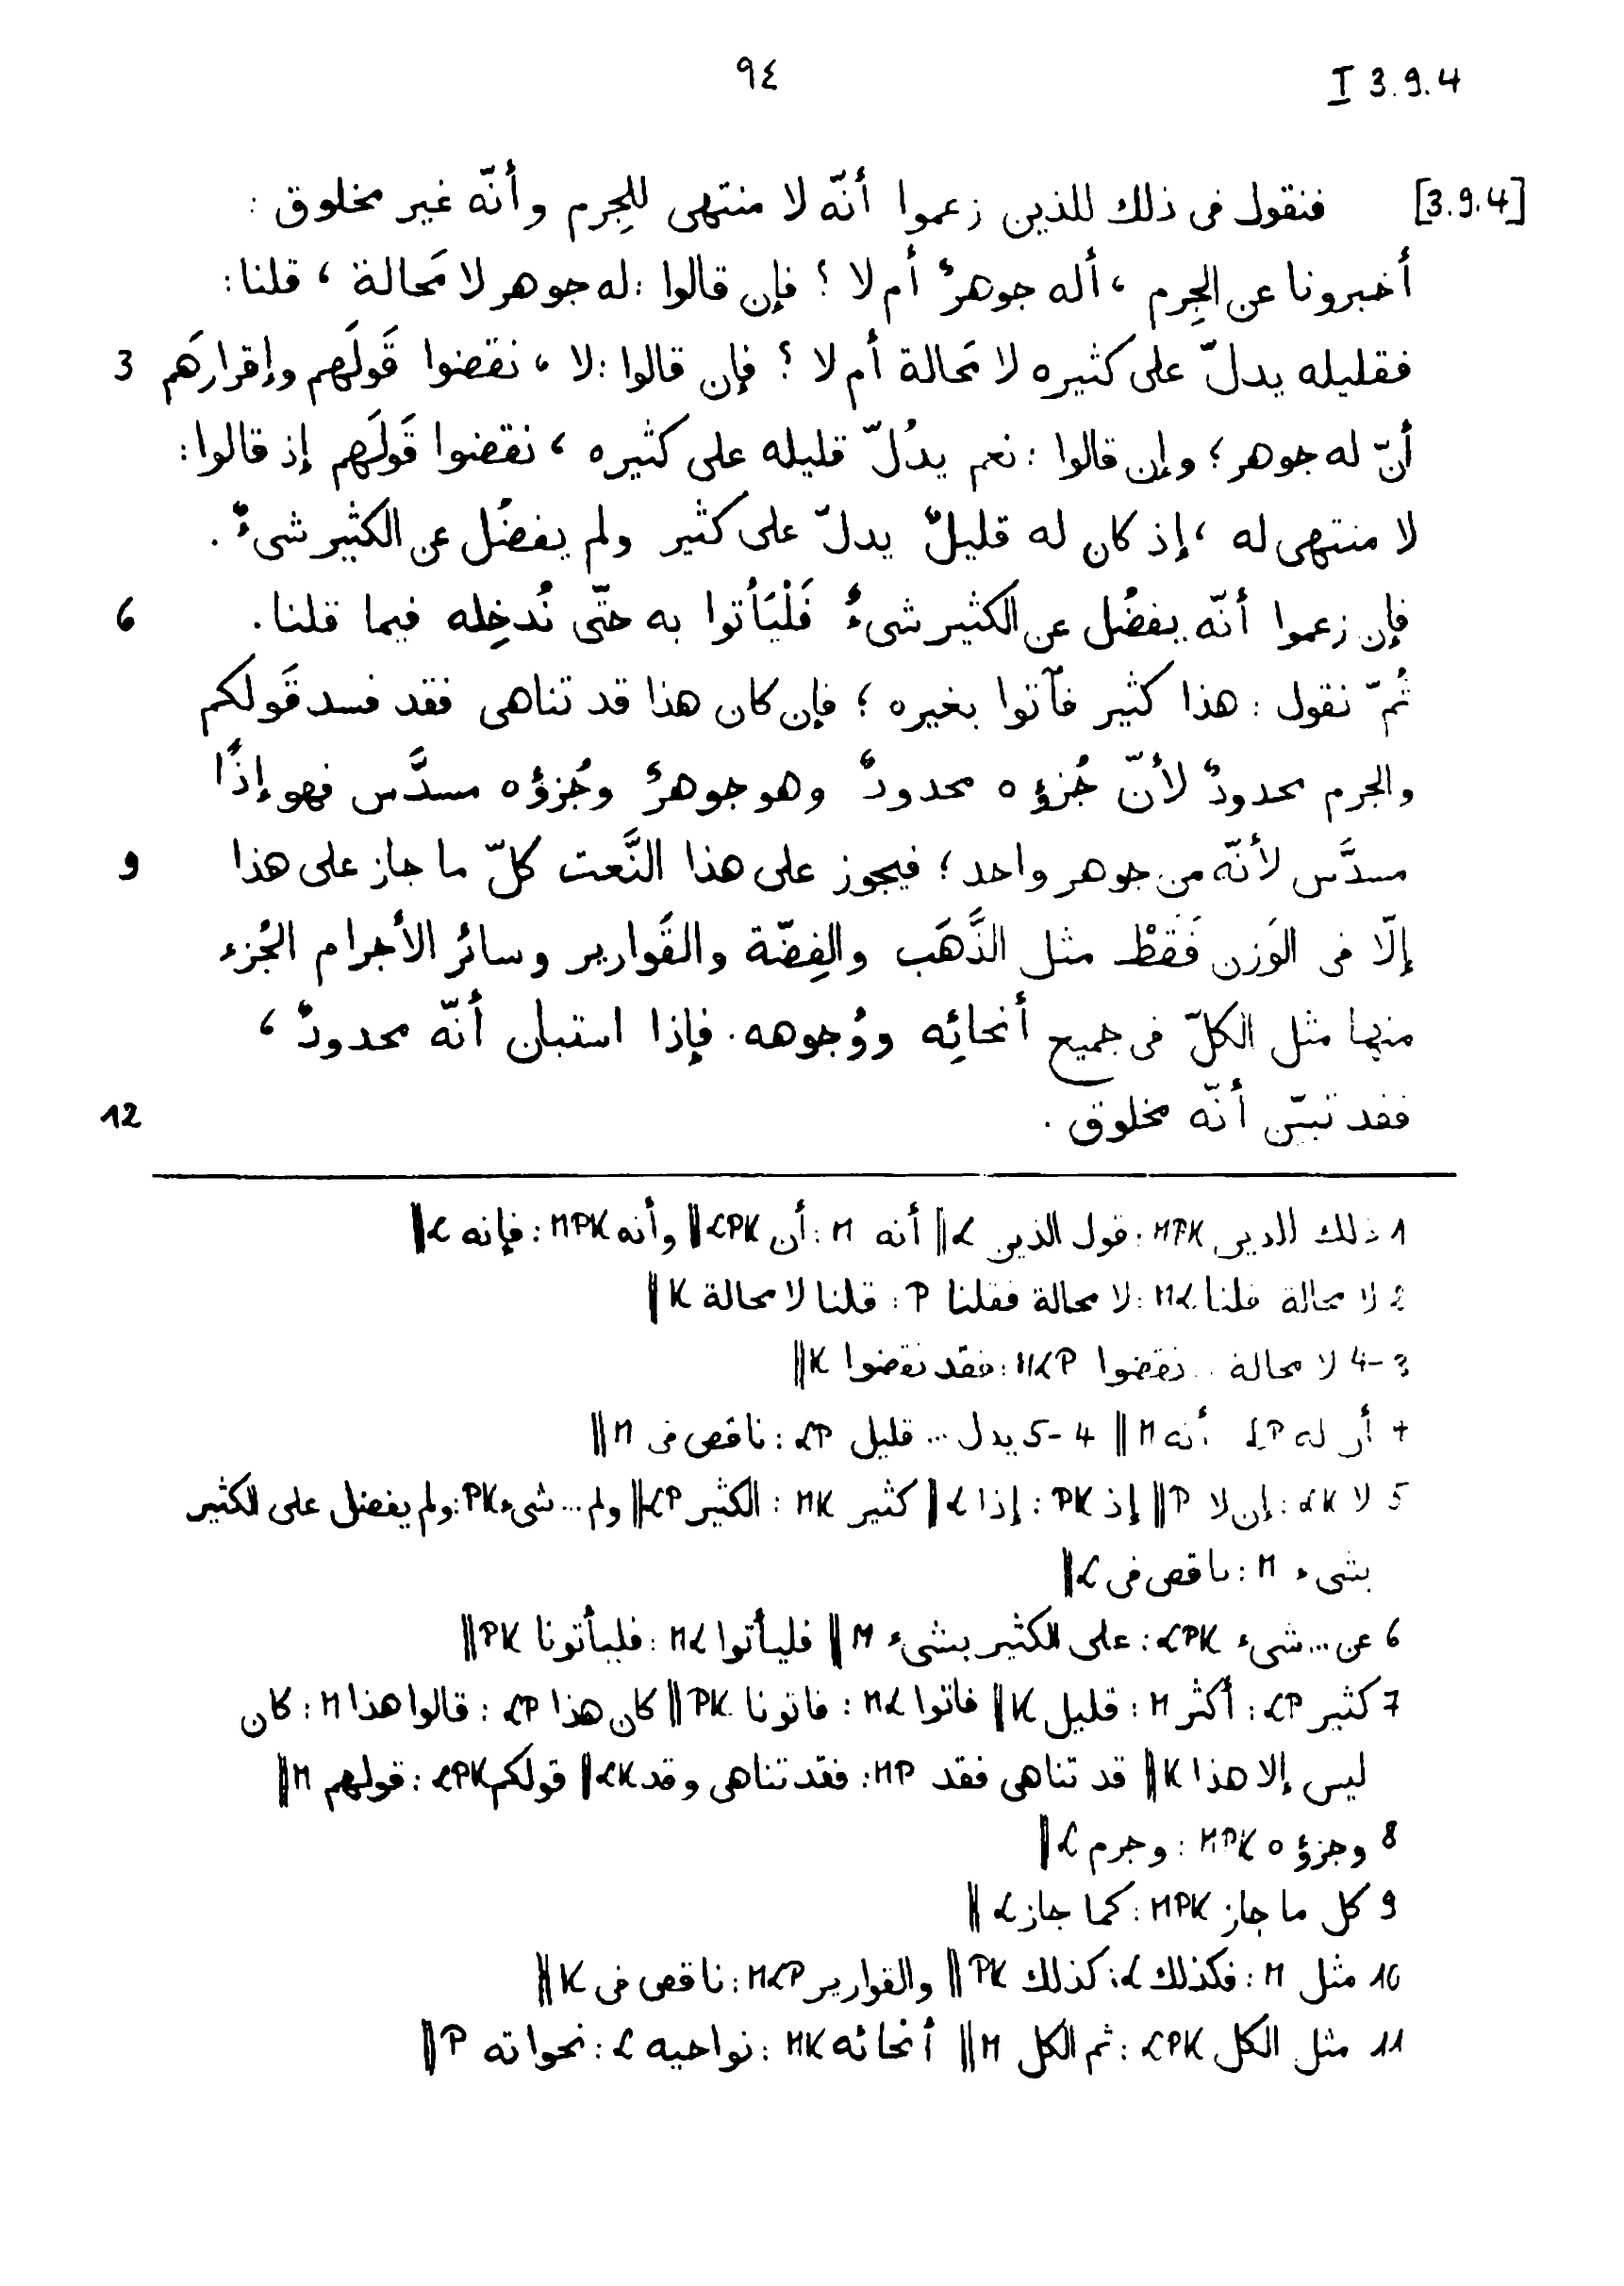 ٩٤
I 3.9.4
[3.9.4] فنقول فى ذلك للذين زعموا أنّه لا منتهى للجِرم وأنّه غير مخلوق :
أخبرونا عن الجِرم ، أله جوهرٌ أم لا ؟ فإن قالوا : له جوهر لا مَحالة ، قلنا :
3 فقليله يدلّ على كثيره لا مَحالة أم لا ؟ فإن قالوا : لا ، نقضوا قَولَهم وإقرارَهم
أنّ له جوهر ؛ وإن قالوا : نعم يدُلّ قليله على كثيره ، نقضوا قَولَهم إذ قالوا :
لا منتهى له ، إذ كان له قليلٌ يدلّ على كثير ولم يفضُل عن الكثير شىءٌ .
6 فإن زعموا أنّه يفضُل عن الكثير شىءٌ فَلْيَأتوا به حتّى نُدخِله فيما قلنا .
ثُمّ نقول : هذا كثير فآتوا بغيره ؛ فإن كان هذا قد تناهى فقد فسد قَولكم
والجرم محدودٌ لأنّ جُزؤه محدودٌ وهو جوهرٌ وجُزؤه مسدَّس فهو إذًا
9 مسدَّس لأنّه من جوهر واحد ؛ فيجوز على هذا النَّعت كلّ ما جاز على هذا
إلّا فى الوَزن فَقَطْ مثل الذَّهَب والفِضّة والقَوارير وسائر الأجرام الجُزء
منها مثل الكلّ فى جميع أنحائِه ووُجوهه . فإذا استبان أنّه محدودٌ ،
12 فقد تبيّن أنّه مخلوق .
1 ذلك للذين MPK : قول الذين L || أنه M : أن LPK || وأنه MPK : فإنه L ||
2 لا محالة قلنا ML : لا محالة فقلنا P : قلنا لا محالة K ||
3-4 لا محالة ... نقضوا MLP : فقد نقضوا K ||
4 أن له LP : أنه M || 4-5 يدل ... قليل LP : ناقص فى M ||
5 لا LK : إن لا P || إذ PK : إذا L || كثير MK : الكثير LP || ولم ... شىء PK : ولم يفضل على الكثير
بشىء M : ناقص فى L ||
6 عن ... شىء LPK : على الكثير بشىء M || فليأتوا ML : فليأتونا PK ||
7 كثير LP : أكثر M : قليل K || فاتوا ML : فاتونا PK || كان هذا LP : قالوا هذا M : كان
ليس إلا هذا K || قد تناهى فقد MP : فقد تناهى وقد LK || قولكم LPK : قولهم M ||
8 وجزؤه MPK : وجرم L ||
9 كل ما جاز MPK : كما جاز L ||
10 مثل M : فكذلك L : كذلك PK || والقوارير MLP : ناقص فى K ||
11 مثل الكل LPK : ثم الكل M || أنحائه MK : نواحيه L : نحواته P ||